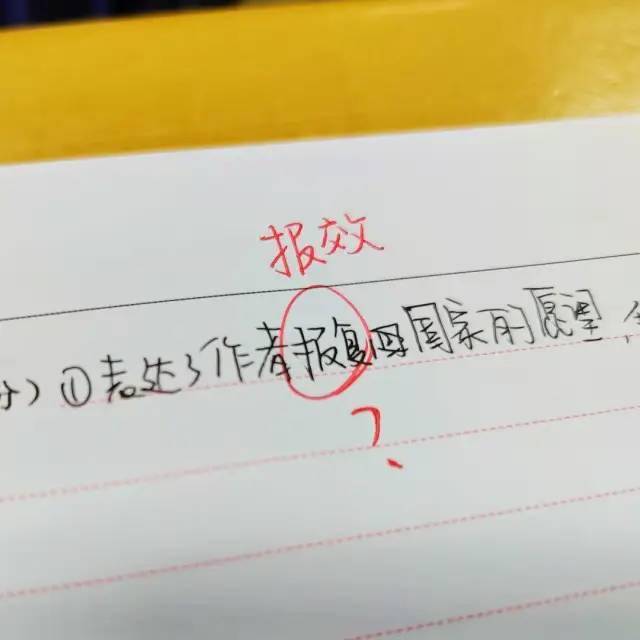 报效
分)①表达了作者报复国家的愿望
?